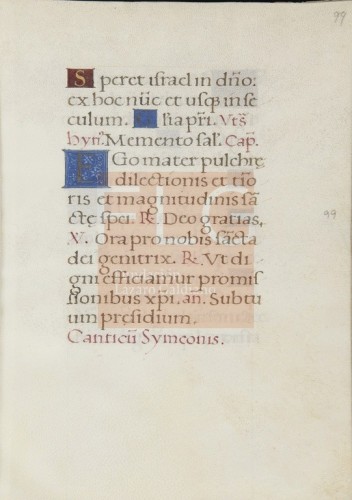 99
Speret israel in dño:
ex hoc nũc et usq; in se
culum. Glia pr̃i. Vt s̃
hyñ. Memento sal̃. Cap̃.
EGo mater pulchrę
dilectionis et tiɱo
ris et magnitudinis sã
ctę spei. ℞. Deo gratias.
℣. Ora pro nobis sãcta
dei genitrix. ℞. Vt di
gni efficiamur promis
sionibus xp̃i. añ. Subtu
um pręsidium.
Canticũ Symeonis.
97